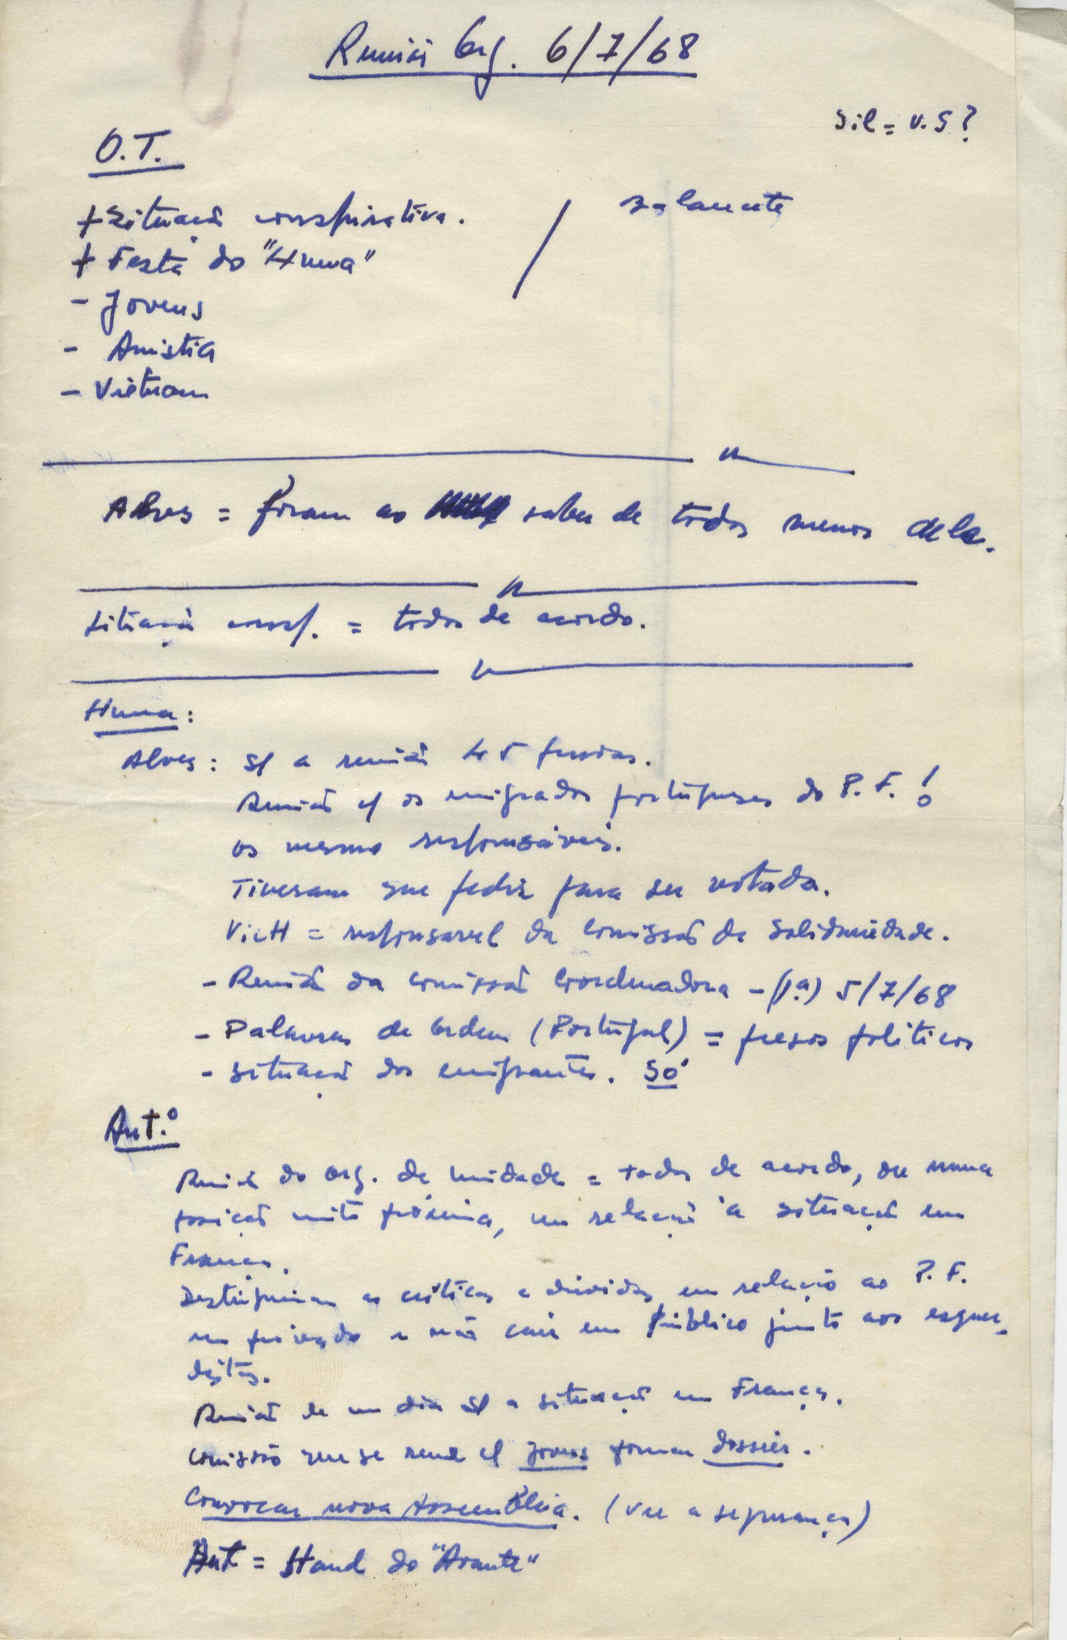 Reunião Org. 6/7/68
Sil = V.S?
O.T.
+ Situação conspirativa.
/ Salanete
+ Festa do "Huma"
- Jovens
- Amistia
- Vietnam
Alves = foram ao saber de todos menos dele.
Sitiação consp. = todos de acordo.
Huma:
Alves: s/ a reunião 4 5 pessoas.
Reunião c/ os emigrados portugueses do P.F.!
os mesmo responsáveis.
Tiveram que pedir para ser votada.
VicH = responsavel da Comissão de Solidariedade.
- Reunião da comissão Coordenadora - (1ª) 5/7/68
- Palavras de Ordem (Portugal) = presos politicos
- situação dos emigrantes. Só
Antº
Reunião do org. de Unidade = todos de acordo, ou numa
posição muito próxima, em relação à situação em
França.
Destinguiam as criticas e dividas em relação ao P.F.
em privado e não cair em público junto aos esquer-
distas.
Reunião de um dia s/ a situação em França.
Comissão que se reune c/ jovens formar dossier.
Convocar nova Assembleia. (Ver a segurança)
Ant = Stand do "Avante"